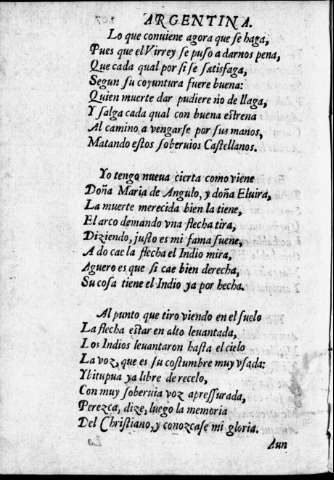 ARGENTINA.
Lo que conuiene agora que se haga,
Pues que el Virrey se puso a darnos pena,
Que cada qual por si se satisfaga,
Segun su coyuntura fuere buena:
Quien muerte dar pudiere no de llaga,
Y salga cada qual con buena estrena
Al camino a vengarse por sus manos,
Matando estos soberuios Castellanos.
Yo tengo nueua cierta como viene
Doña Maria de Angulo, y doña Eluira,
La muerte merecida bien la tiene,
El arco demando vna flecha tira,
Diziendo, justo es mi fama suene,
A do cae la flecha el Indio mira,
Aguero es que si cae bien derecha,
Su cosa tiene el Indio ya por hecha.
Al punto que tiro viendo en el suelo
La flecha estar en alto leuantada,
Los Indios leuantaron hasta el cielo
La voz, que es su costumbre muy vsada:
Ybitupua ya libre de recelo,
Con muy soberuia voz apressurada,
Perezca, dize, luego la memoria
Del Christiano, y conozcase mi gloria.
Aun